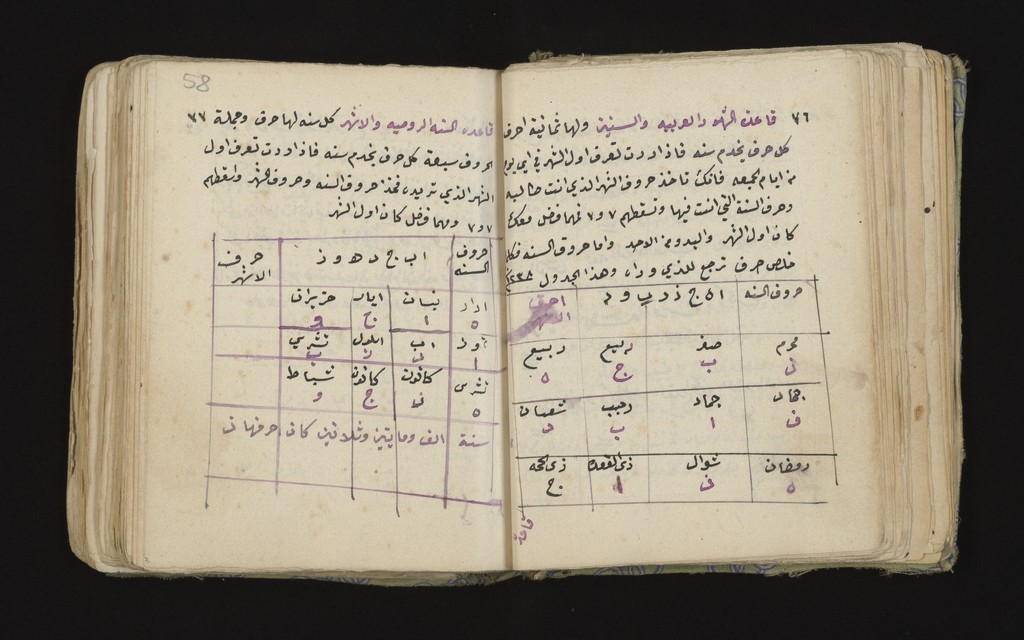 ٧٦
قاعدة الشهور العربيه والسنين ولها ثمانية احرف
كل حرف يخدم سنه فاذا اردت تعرف اول الشهر في اي يوم
من ايام الجمعه فانك تاخذ حروف الشهر الذي انت طالبه
وحرف السنة التي انت فيها وتسقطهم ٧ و ٧ فمهما فضل معك
كان اول الشهر والبدو من الاحد واما حروف السنه فكلما
خلص حرف ترجع للذي وراه وهذا الجدول
حروف السنه ا ه ج ز د ب و د احرف الاشهر
محرم صفر ربيع ربيع
ز ب ج ه
جماد جماد رجب شعبان
و ا ب د
رمضان شوال ذي القعده ذي الحجه
ه ز ا ج
قاعدة
58
٧٧
قاعدة السنه الروميه والاشهر كل سنه لها حرف وجملة
الحروف سبعة كل حرف يخدم سنه فاذا اردت تعرف اول
الشهر الذي تريده فخذ حروف السنه وحروف الشهر واسقطهم
٧ و ٧ ومهما فضل كان اول الشهر
حروف السنه ا ب ج د ه و ز حرف الاشهر
ادار نيسان ايار حزيران
ه ا ج و
تموز اب ايلول تشرين
ا د ز ب
تشرين كانون كانون شباط
ه ز ج و
سنة الف ومايتين وثلاثين كان احرفها ز